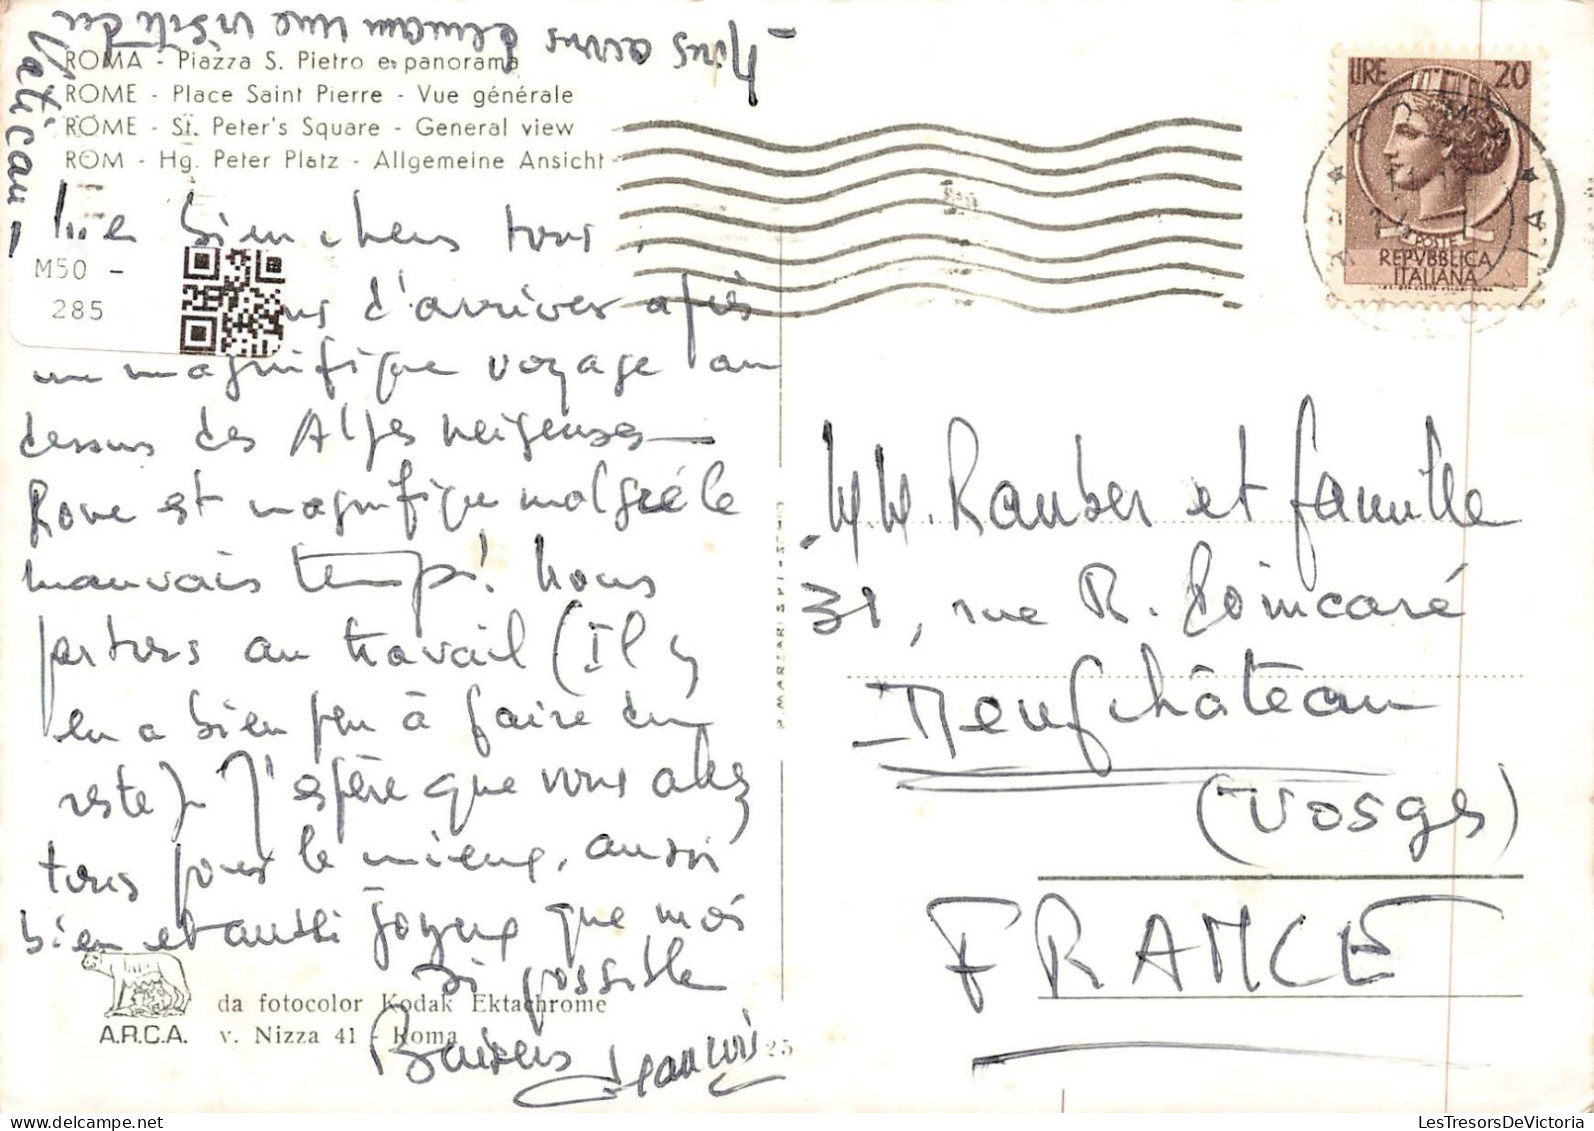 - Nous avons demain une visite du
Vatican -
ROMA - Piazza S. Pietro e panorama
ROME - Place Saint Pierre - Vue générale
ROME - St. Peter's Square - General view
ROM - Hg. Peter Platz - Allgemeine Ansicht
M50 -
285
bien chers tous,
d'arriver après
un magnifique voyage au
dessus des Alpes neigeuses -
Rome est magnifique malgré le
mauvais temps! Nous
partons au travail (Il y
en a bien peu à faire du
reste). J'espère que vous allez
tous pour le mieux, aussi
bien et aussi joyeux que moi
si possible
Baisers Jean Louis
da fotocolor Kodak Ektachrome
A.R.C.A. v. Nizza 41 - Roma
25
LIRE 20
POSTE
REPVBBLICA
ITALIANA
ROMA
MM. Rauber et famille
31, rue R. Poincaré
Neufchâteau
(Vosges)
FRANCE
LesTresorsDeVictoria.com